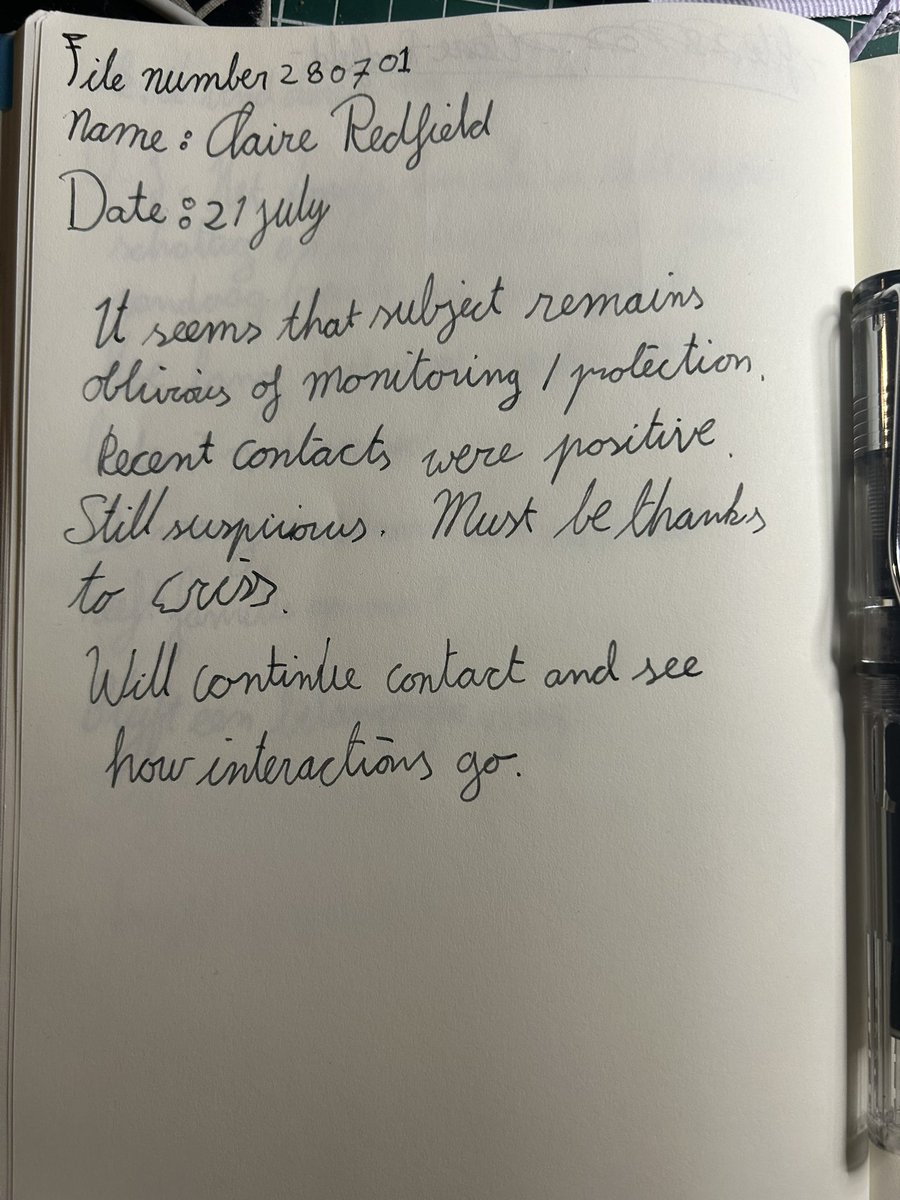 File number 280701
Name : Claire Redfield
Date : 21 july
It seems that subject remains
oblivious of monitoring / protection.
Recent contacts were positive.
Still suspicious. Must be thanks
to
Will continue contact and see
how interactions go.